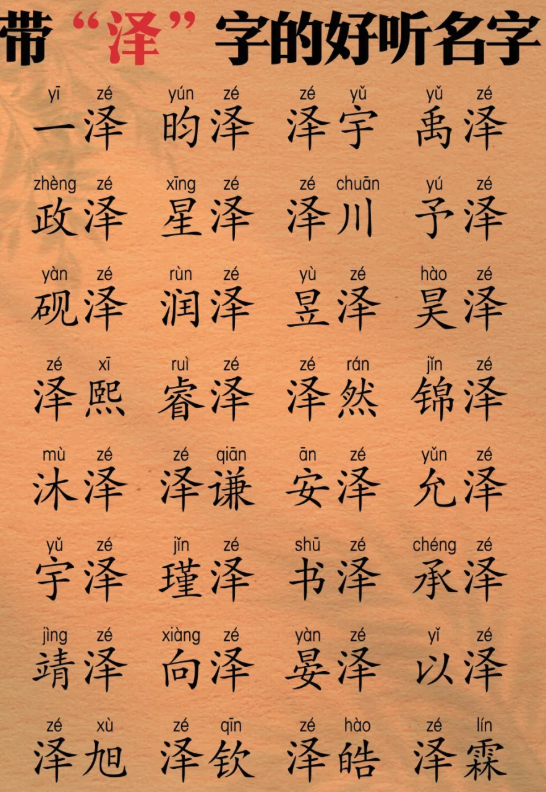 带“泽”字的好听名字
yī zé yún zé zé yǔ yǔ zé
一泽 昀泽 泽宇 禹泽
zhèng zé xīng zé zé chuān yú zé
政泽 星泽 泽川 予泽
yàn zé rùn zé yù zé hào zé
砚泽 润泽 昱泽 昊泽
zé xī ruì zé zé rán jǐn zé
泽熙 睿泽 泽然 锦泽
mù zé zé qiān ān zé yǔn zé
沐泽 泽谦 安泽 允泽
yǔ zé jǐn zé shū zé chéng zé
宇泽 瑾泽 书泽 承泽
jìng zé xiàng zé yàn zé yǐ zé
靖泽 向泽 晏泽 以泽
zé xù zé qīn zé hào zé lín
泽旭 泽钦 泽皓 泽霖